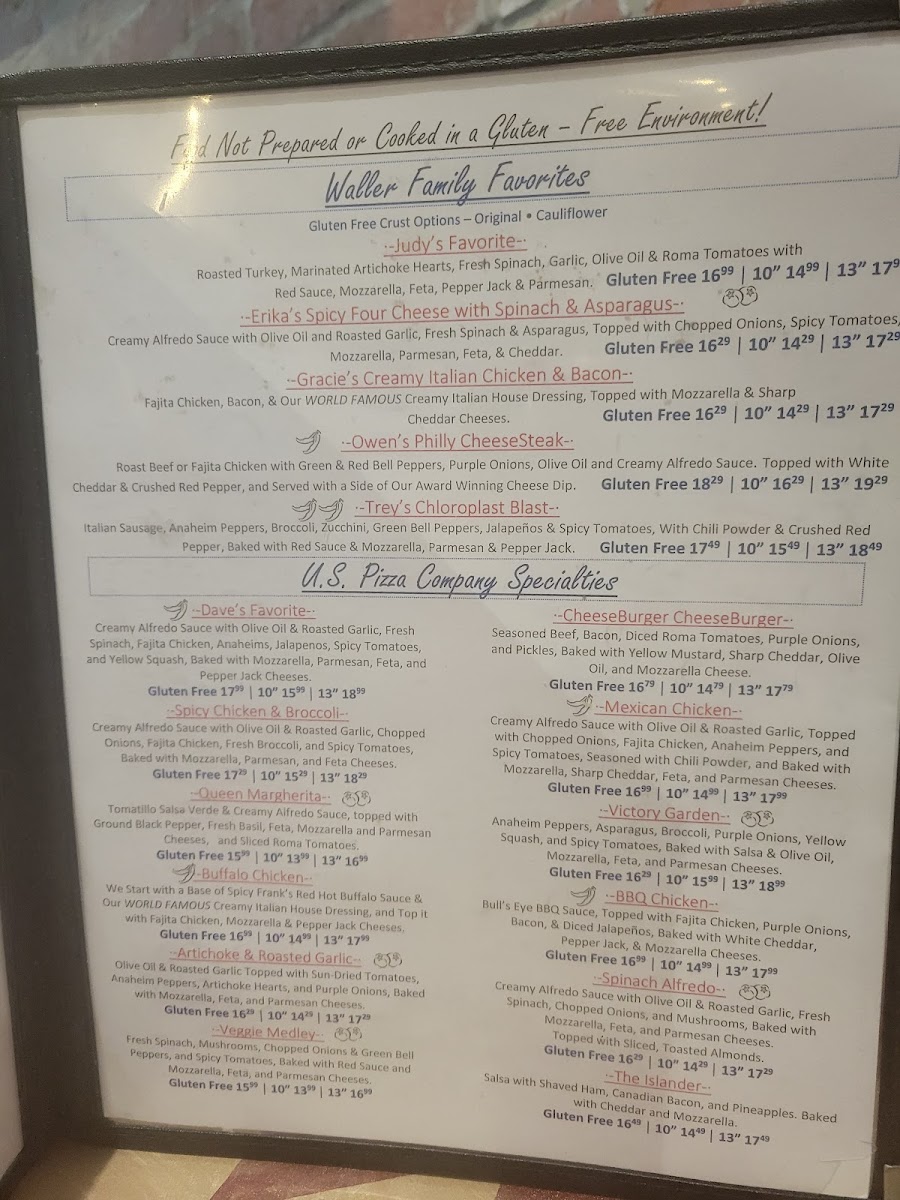 Food Not Prepared or Cooked in a Gluten – Free Environment!
Waller Family Favorites
Gluten Free Crust Options – Original • Cauliflower
·-Judy's Favorite-·
Roasted Turkey, Marinated Artichoke Hearts, Fresh Spinach, Garlic, Olive Oil & Roma Tomatoes with
Red Sauce, Mozzarella, Feta, Pepper Jack & Parmesan. Gluten Free 16⁹⁹ | 10” 14⁹⁹ | 13” 17⁹
·-Erika's Spicy Four Cheese with Spinach & Asparagus-·
Creamy Alfredo Sauce with Olive Oil and Roasted Garlic, Fresh Spinach & Asparagus, Topped with Chopped Onions, Spicy Tomatoes,
Mozzarella, Parmesan, Feta, & Cheddar. Gluten Free 16²⁹ | 10” 14²⁹ | 13” 17²⁹
·-Gracie's Creamy Italian Chicken & Bacon-·
Fajita Chicken, Bacon, & Our WORLD FAMOUS Creamy Italian House Dressing, Topped with Mozzarella & Sharp
Cheddar Cheeses. Gluten Free 16²⁹ | 10” 14²⁹ | 13” 17²⁹
·-Owen's Philly CheeseSteak-·
Roast Beef or Fajita Chicken with Green & Red Bell Peppers, Purple Onions, Olive Oil and Creamy Alfredo Sauce. Topped with White
Cheddar & Crushed Red Pepper, and Served with a Side of Our Award Winning Cheese Dip. Gluten Free 18²⁹ | 10” 16²⁹ | 13” 19²⁹
·-Trey's Chloroplast Blast-·
Italian Sausage, Anaheim Peppers, Broccoli, Zucchini, Green Bell Peppers, Jalapeños & Spicy Tomatoes, With Chili Powder & Crushed Red
Pepper, Baked with Red Sauce & Mozzarella, Parmesan & Pepper Jack. Gluten Free 17⁴⁹ | 10” 15⁴⁹ | 13” 18⁴⁹
U.S. Pizza Company Specialties
·-Dave's Favorite-·
Creamy Alfredo Sauce with Olive Oil & Roasted Garlic, Fresh
Spinach, Fajita Chicken, Anaheims, Jalapenos, Spicy Tomatoes,
and Yellow Squash, Baked with Mozzarella, Parmesan, Feta, and
Pepper Jack Cheeses.
Gluten Free 17⁹⁹ | 10” 15⁹⁹ | 13” 18⁹⁹
·-Spicy Chicken & Broccoli-·
Creamy Alfredo Sauce with Olive Oil & Roasted Garlic, Chopped
Onions, Fajita Chicken, Fresh Broccoli, and Spicy Tomatoes,
Baked with Mozzarella, Parmesan, and Feta Cheeses.
Gluten Free 17²⁹ | 10” 15²⁹ | 13” 18²⁹
·-Queen Margherita-·
Tomatillo Salsa Verde & Creamy Alfredo Sauce, topped with
Ground Black Pepper, Fresh Basil, Feta, Mozzarella and Parmesan
Cheeses, and Sliced Roma Tomatoes.
Gluten Free 15⁹⁹ | 10” 13⁹⁹ | 13” 16⁹⁹
·-Buffalo Chicken-·
We Start with a Base of Spicy Frank's Red Hot Buffalo Sauce &
Our WORLD FAMOUS Creamy Italian House Dressing, and Top it
with Fajita Chicken, Mozzarella & Pepper Jack Cheeses.
Gluten Free 16⁹⁹ | 10” 14⁹⁹ | 13” 17⁹⁹
·-Artichoke & Roasted Garlic-·
Olive Oil & Roasted Garlic Topped with Sun-Dried Tomatoes,
Anaheim Peppers, Artichoke Hearts, and Purple Onions, Baked
with Mozzarella, Feta, and Parmesan Cheeses.
Gluten Free 16²⁹ | 10” 14²⁹ | 13” 17²⁹
·-Veggie Medley-·
Fresh Spinach, Mushrooms, Chopped Onions & Green Bell
Peppers, and Spicy Tomatoes, Baked with Red Sauce and
Mozzarella, Feta, and Parmesan Cheeses.
Gluten Free 15⁹⁹ | 10” 13⁹⁹ | 13” 16⁹⁹
·-CheeseBurger CheeseBurger-·
Seasoned Beef, Bacon, Diced Roma Tomatoes, Purple Onions,
and Pickles, Baked with Yellow Mustard, Sharp Cheddar, Olive
Oil, and Mozzarella Cheese.
Gluten Free 16⁷⁹ | 10” 14⁷⁹ | 13” 17⁷⁹
·-Mexican Chicken-·
Creamy Alfredo Sauce with Olive Oil & Roasted Garlic, Topped
with Chopped Onions, Fajita Chicken, Anaheim Peppers, and
Spicy Tomatoes, Seasoned with Chili Powder, and Baked with
Mozzarella, Sharp Cheddar, Feta, and Parmesan Cheeses.
Gluten Free 16⁹⁹ | 10” 14⁹⁹ | 13” 17⁹⁹
·-Victory Garden-·
Anaheim Peppers, Asparagus, Broccoli, Purple Onions, Yellow
Squash, and Spicy Tomatoes, Baked with Salsa & Olive Oil,
Mozzarella, Feta, and Parmesan Cheeses.
Gluten Free 16²⁹ | 10” 15⁹⁹ | 13” 18⁹⁹
·-BBQ Chicken-·
Bull's Eye BBQ Sauce, Topped with Fajita Chicken, Purple Onions,
Bacon, & Diced Jalapeños, Baked with White Cheddar,
Pepper Jack, & Mozzarella Cheeses.
Gluten Free 16⁹⁹ | 10” 14⁹⁹ | 13” 17⁹⁹
·-Spinach Alfredo-·
Creamy Alfredo Sauce with Olive Oil & Roasted Garlic, Fresh
Spinach, Chopped Onions, and Mushrooms, Baked with
Mozzarella, Feta, and Parmesan Cheeses.
Topped with Sliced, Toasted Almonds.
Gluten Free 16²⁹ | 10” 14²⁹ | 13” 17²⁹
·-The Islander-·
Salsa with Shaved Ham, Canadian Bacon, and Pineapples. Baked
with Cheddar and Mozzarella.
Gluten Free 16⁴⁹ | 10” 14⁴⁹ | 13” 17⁴⁹